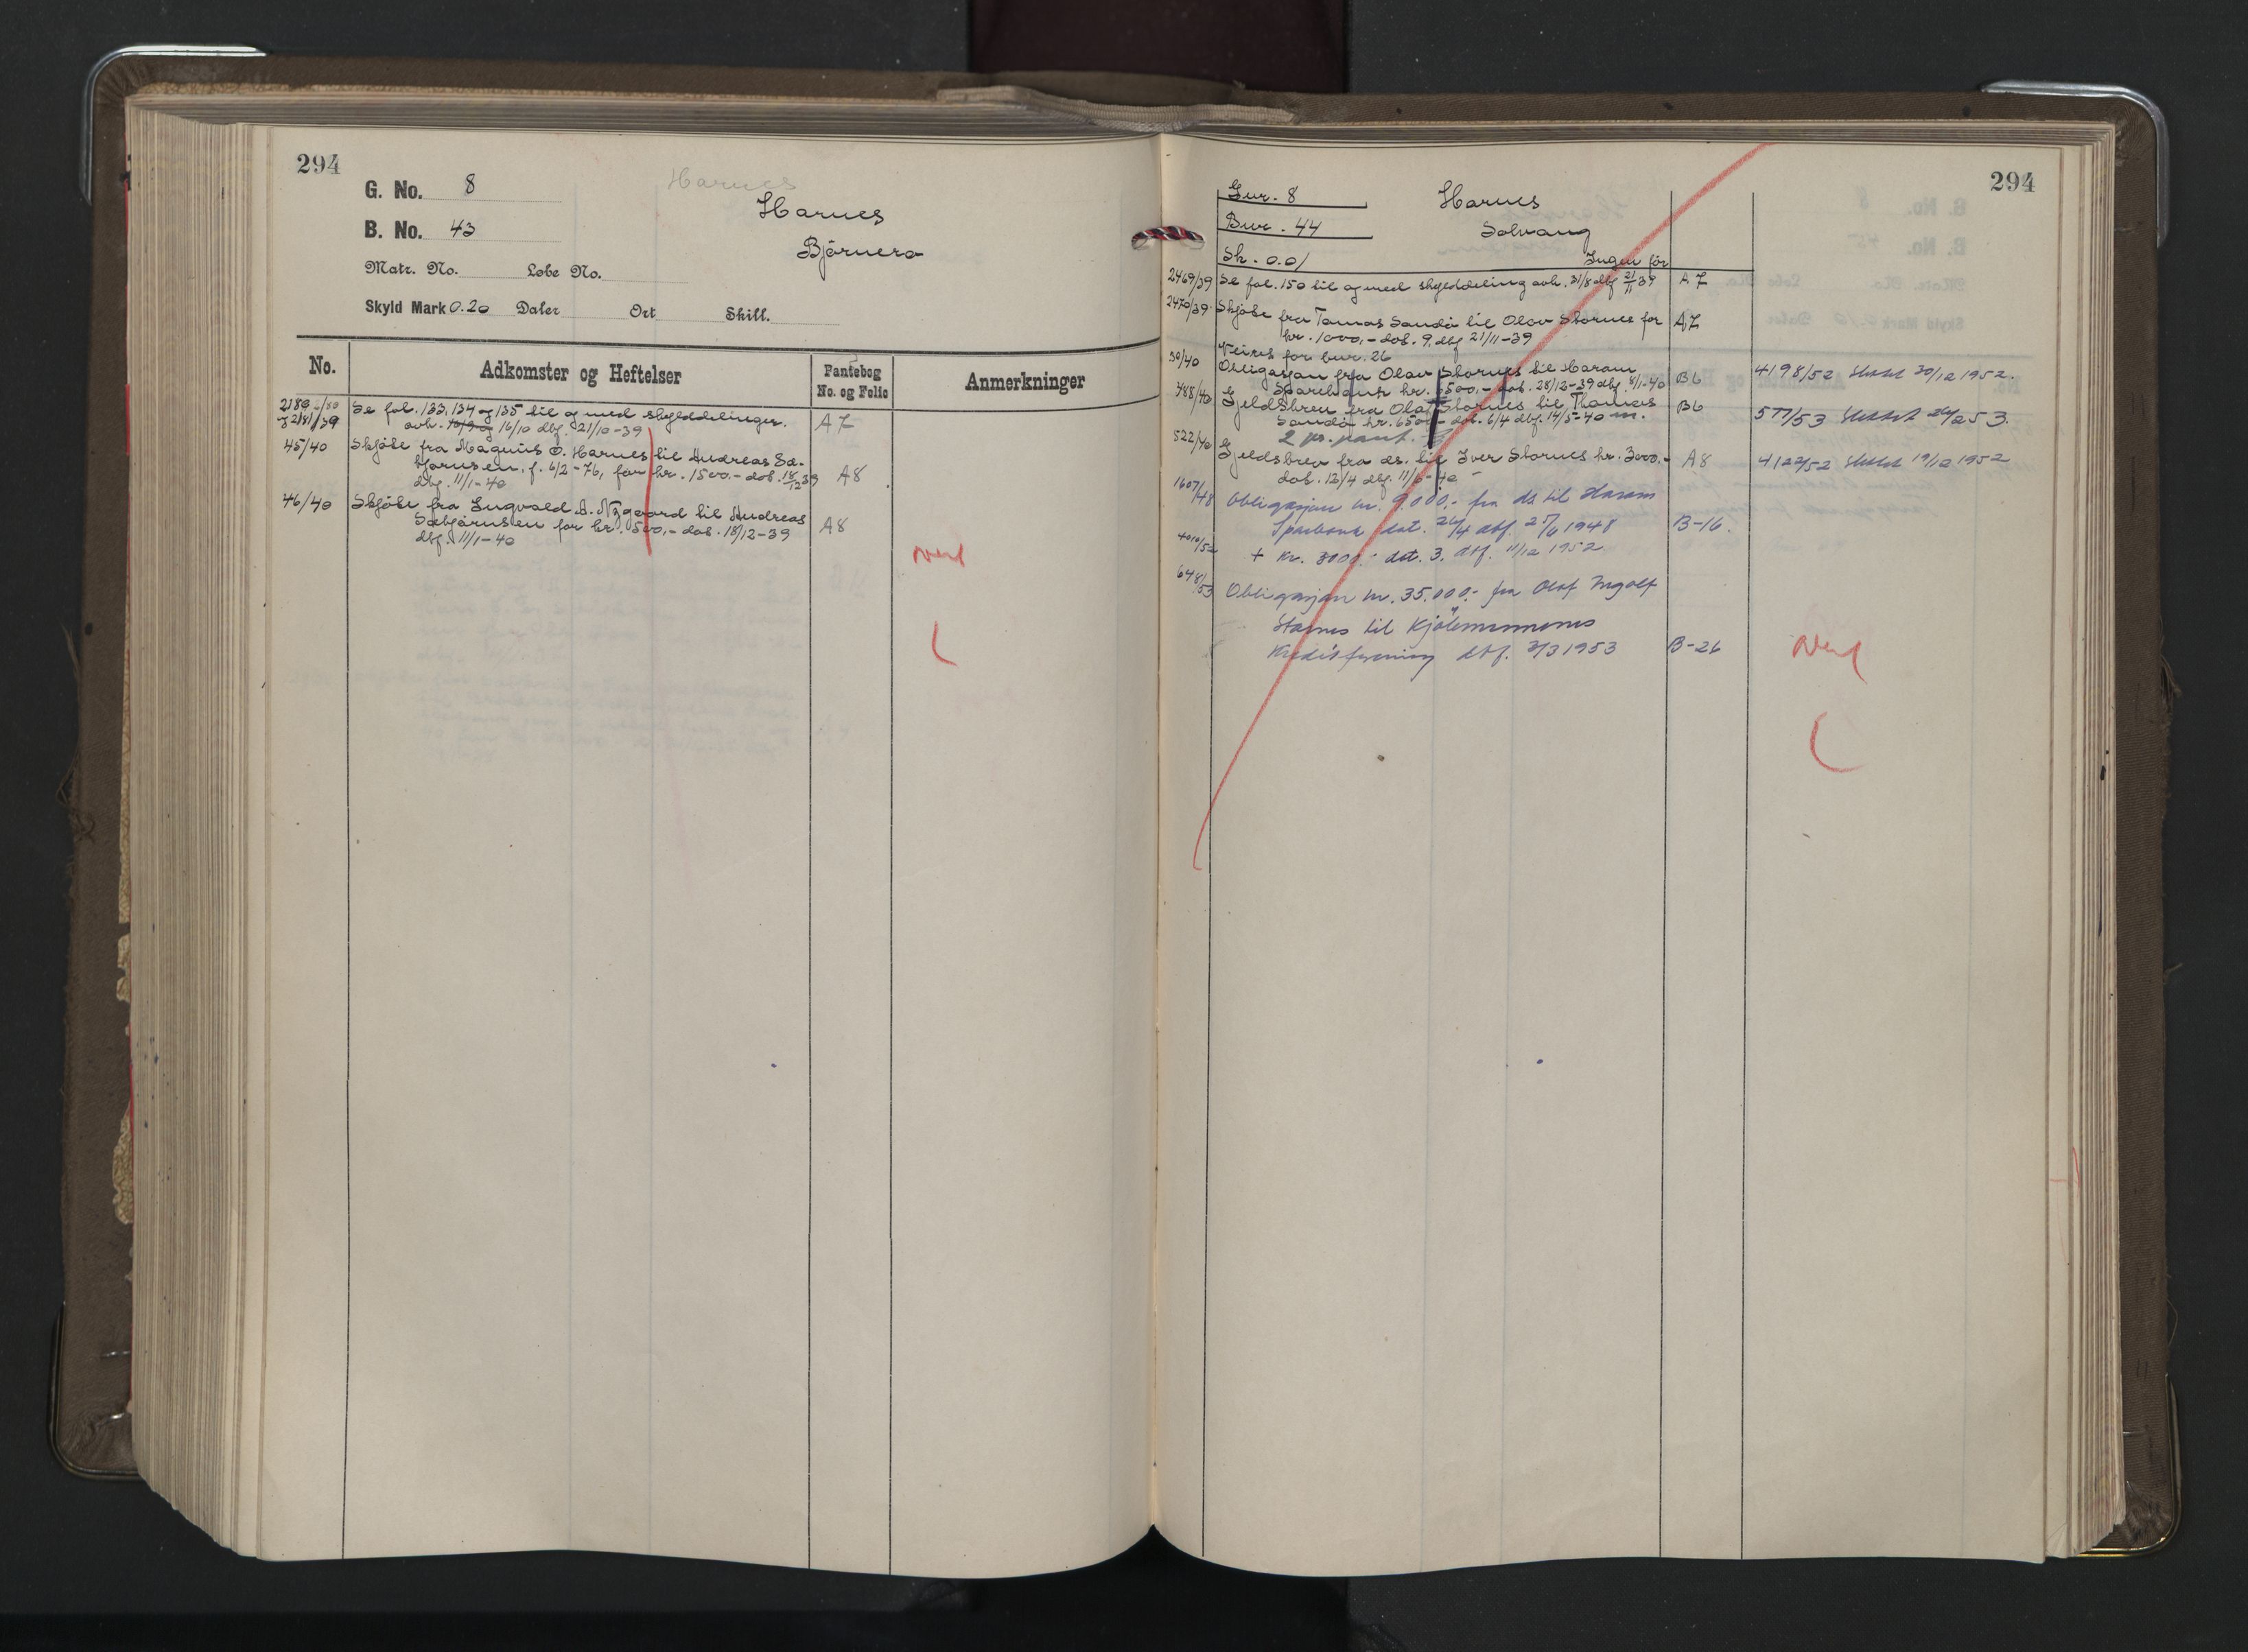 294
G. No. 8
Harnes
Harnes
B. No. 43
Björnerø
Matr. No. Løbe No.
Skyld Mark 0.20 Daler Ort Skill.
No. Adkomster og Heftelser Pantebog No. og Folio Anmerkninger
2180
2181/39 Se fol. 133, 134 og 135 til og med skylddelinger. A 7
avh. 16/10 dbf. 21/10-39
45/40 Skjöte fra Magnus O. Harnes til Andreas Sæ-
bjørnsen, f. 6/2-76, for kr. 1500.- dat. 18/12 39 A8
dbf. 11/1-40
46/40 Skjöte fra Ingvald A. Nygaard til Andreas
Sæbjørnsen for kr. 500,- dat. 18/12-39 A8
dbf. 11/1-40
294
Gnr. 8 Harnes
Bnr. 44 Solvang
Sk. 0.01 Ingen för
2469/39 Se fol. 150 til og med skylddeling avh. 31/8 dbf 21/11 39 A 7
2470/39 Skjöte fra Tomas Sandö til Olav Stornes for A7
kr. 1000,- dat. 9. dbf 21/11-39
Veirett for bnr. 26
30/40 Obligasjon fra Olav Stornes til Haram
Sparebank kr. 5500.- dat. 28/12-39 dbf. 8/1-40 B6 4198/52 Slettet 30/12 1952.
788/40 Gjeldsbrev fra Olaf Stornes til Thomas
Sandö kr. 6500.- dat. 6/4 dbf. 14/5-40 m. B6 577/53 Slettet 53.
2 pr. pant.
522/40 Gjeldsbrev fra ds. til Iver Stornes kr. 3000.- A8 4122/52 Slettet 19/12 1952
dat. 12/4 dbf. 11/6-40
1607/48 Obligasjon kr. 9.000.- fra ds til Haram
Sparbank dat. 26/4 dbf. 25/6 1948 B-16.
4010/52 + kr. 3000.- dat. 3. dbf. 11/12 1952
648/53 Obligasjon kr. 35.000.- fra Olaf Ingolf
Stornes til Kjøbmennenes
Kreditforening dbf. 3/3 1953 B-26